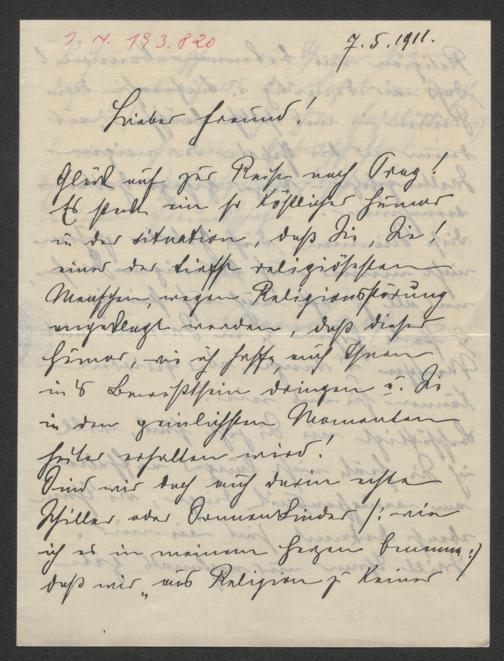 I. N. 193.820
7.5.1911.
Lieber Freund!
Glück auf zur Reise nach Prag!
Es steckt ein so köstlicher Humor
in der Situation, daß Sie, Sie!
einer der tiefst religiösesten
Menschen, wegen Religionsstörung
angeklagt werden, daß dieser
Humor, wie ich hoffe, auch Ihnen
in's Bewußtsein dringen u. Sie
in den peinlichsten Momenten
heiter erhalten wird!
Sind wir doch auch darin echte
Schiller oder Sonnenkinder /: wie
ich es in meinem Herzen benenne :/
daß wir "aus Religion zu keiner